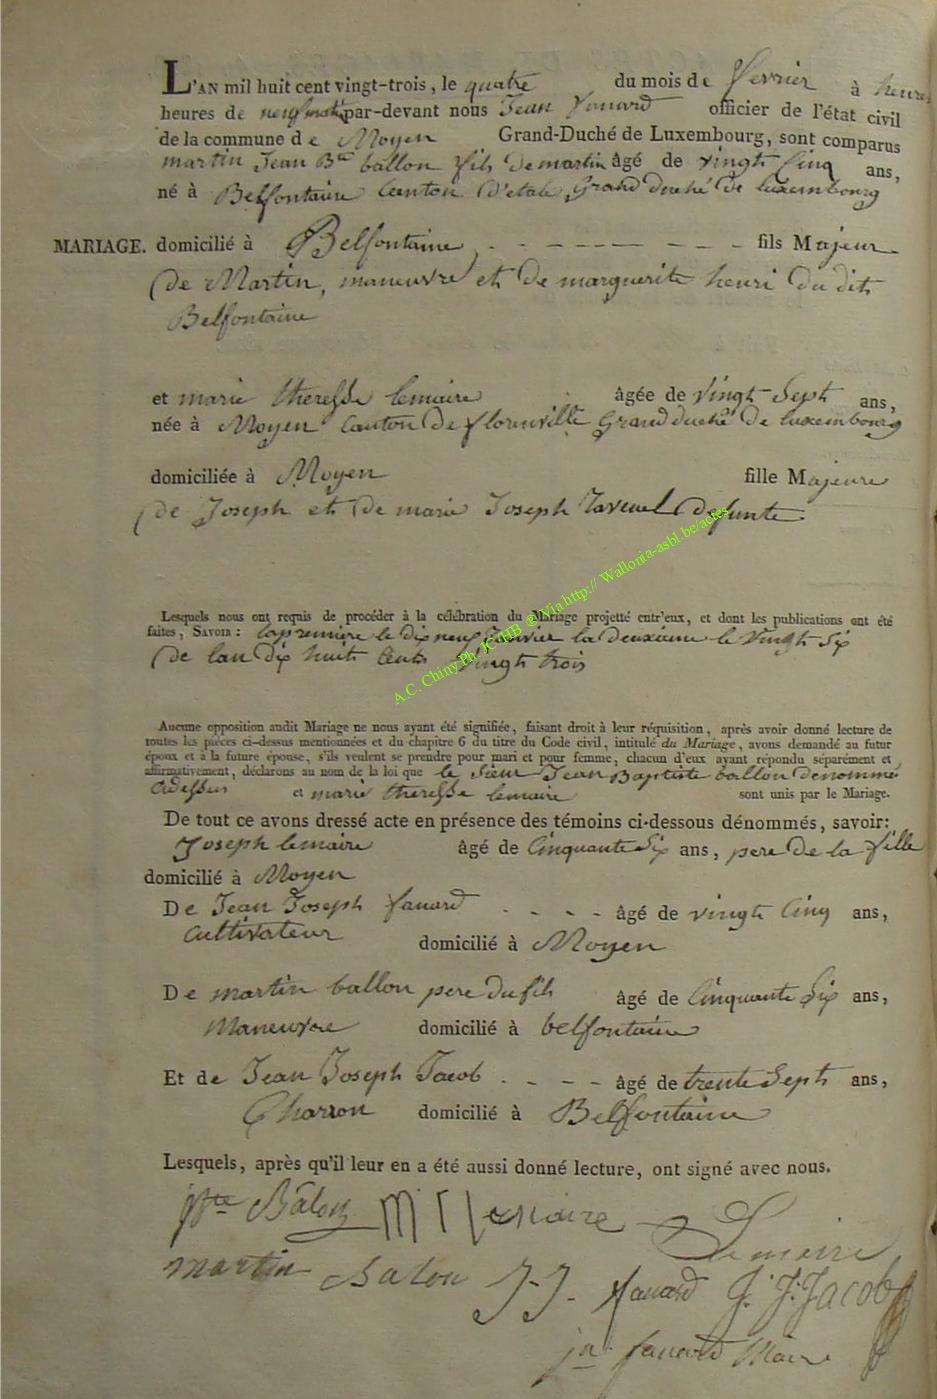 L'AN mil huit cent vingt-trois, le quatre du mois de fevrier à heures
heures de neuf par-devant nous Jean fanard officier de l'état civil
de la commune de Moyen Grand-Duché de Luxembourg, sont comparus
martin Jean Bte ballon fils de martin âgé de vingt Cinq ans,
né à Belfontaine Canton d'etale Grand duché de luxembourg
MARIAGE. domicilié à Belfontaine - - - - - - - fils Majeur
de Martin, maneuvre et de marguerite henri du dit
Belfontaine
et marie theresse lemaire âgée de vingt Sept ans,
née à Moyen Canton de florenville Grand duché de luxembourg
domiciliée à Moyen fille Majeure
de Joseph et de marie Joseph defunte
Lesquels nous ont requis de procéder à la célébration du Mariage projetté entr'eux, et dont les publications ont été
faites, SAVOIR : la premiere le dix neuf Janvier la deuxieme le vingt Six
de lan dix huit Cent vingt trois
A.C. Chiny Ph. JCHHB @ Via http:// Wallonia-asbl.be/actes
Aucune opposition audit Mariage ne nous ayant été signifiée, faisant droit à leur réquisition, après avoir donné lecture de
toutes les pièces ci-dessus mentionnées et du chapitre 6 du titre du Code civil, intitulé du Mariage, avons demandé au futur
époux et à la future épouse, s'ils veulent se prendre pour mari et pour femme, chacun d'eux ayant répondu séparément et
affirmativement, déclarons au nom de la loi que le Sieur Jean Baptiste ballon denommé
Cidessus et marie theresse lemaire sont unis par le Mariage.
De tout ce avons dressé acte en présence des témoins ci-dessous dénommés, savoir:
Joseph lemaire âgé de Cinquante Six ans, pere de la fille
domicilié à Moyen
De Jean Joseph fanard - - - - âgé de vingt Cinq ans,
Cultivateur domicilié à Moyen
De martin ballon pere du fils âgé de Cinquante Six ans,
Maneuvre domicilié à belfontaine
Et de Jean Joseph Jacob - - - - âgé de trente Sept ans,
Charron domicilié à Belfontaine
Lesquels, après qu'il leur en a été aussi donné lecture, ont signé avec nous.
Bte Bâlon M T lemaire Lemaire
martin Balon J J. fanard J. J. Jacob
jn fanard Maire